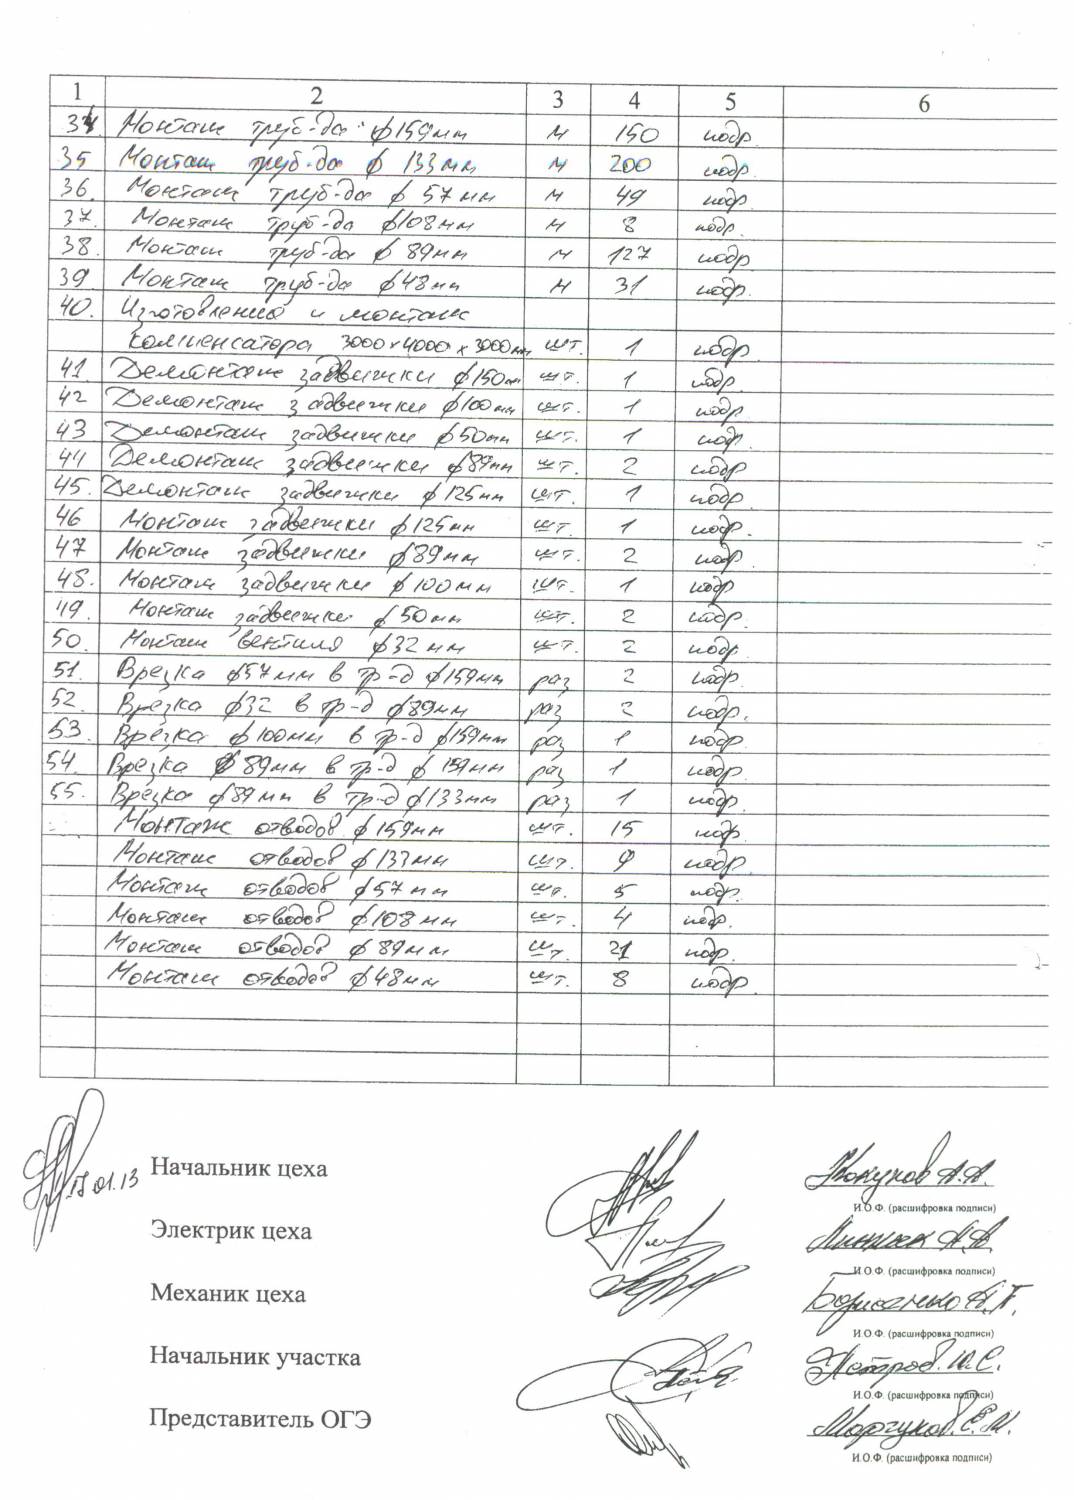 1 2 3 4 5 6
34 Монтаж труб-да ф159мм м 150 подр.
35 Монтаж труб-да ф 133мм м 200 подр.
36. Монтаж труб-да ф 57мм м 49 подр.
37. Монтаж труб-да ф108мм м 8 подр.
38. Монтаж труб-да ф 89мм м 127 подр
39 Монтаж труб-да ф48мм м 31 подр.
40. Изготовление и монтаж
компенсатора 3000x4000x3000мм шт. 1 подр
41. Демонтаж задвижки ф150мм шт. 1 подр
42 Демонтаж задвижки ф100мм шт. 1 подр
43 Демонтаж задвижки ф50мм шт. 1 подр.
44 Демонтаж задвижки ф89мм шт. 2 подр
45. Демонтаж задвижки ф125мм шт. 1 подр
46 Монтаж задвижки ф125мм шт. 1 подр.
47 Монтаж задвижки ф89мм шт. 2 подр
48. Монтаж задвижки ф100мм шт. 1 подр
49. Монтаж задвижки ф50мм шт. 2 подр.
50. Монтаж вентиля ф32мм шт. 2 подр
51. Врезка ф57мм в тр-д ф159мм раз 2 подр.
52. Врезка ф32 в тр-д ф89мм раз 2 подр.
53. Врезка ф100мм в тр-д ф159мм раз 1 подр
54. Врезка ф89мм в тр-д ф159мм раз 1 подр.
55. Врезка ф89мм в тр-д ф133мм раз 1 подр.
Монтаж отводов ф159мм шт. 15 подр.
Монтаж отводов ф133мм шт. подр.
Монтаж отводов ф57мм шт. 5 подр.
Монтаж отводов ф108мм шт. 4 подр.
Монтаж отводов ф89мм шт. 21 подр.
Монтаж отводов ф48мм шт. 8 подр.
17.01.13
Начальник цеха А.А.
И.О.Ф. (расшифровка подписи)
Электрик цеха
И.О.Ф. (расшифровка подписи)
Механик цеха Борисенко
И.О.Ф. (расшифровка подписи)
Начальник участка Петров. Ю.С.
И.О.Ф. (расшифровка подписи)
Представитель ОГЭ Моргунов. Е.М.
И.О.Ф. (расшифровка подписи)